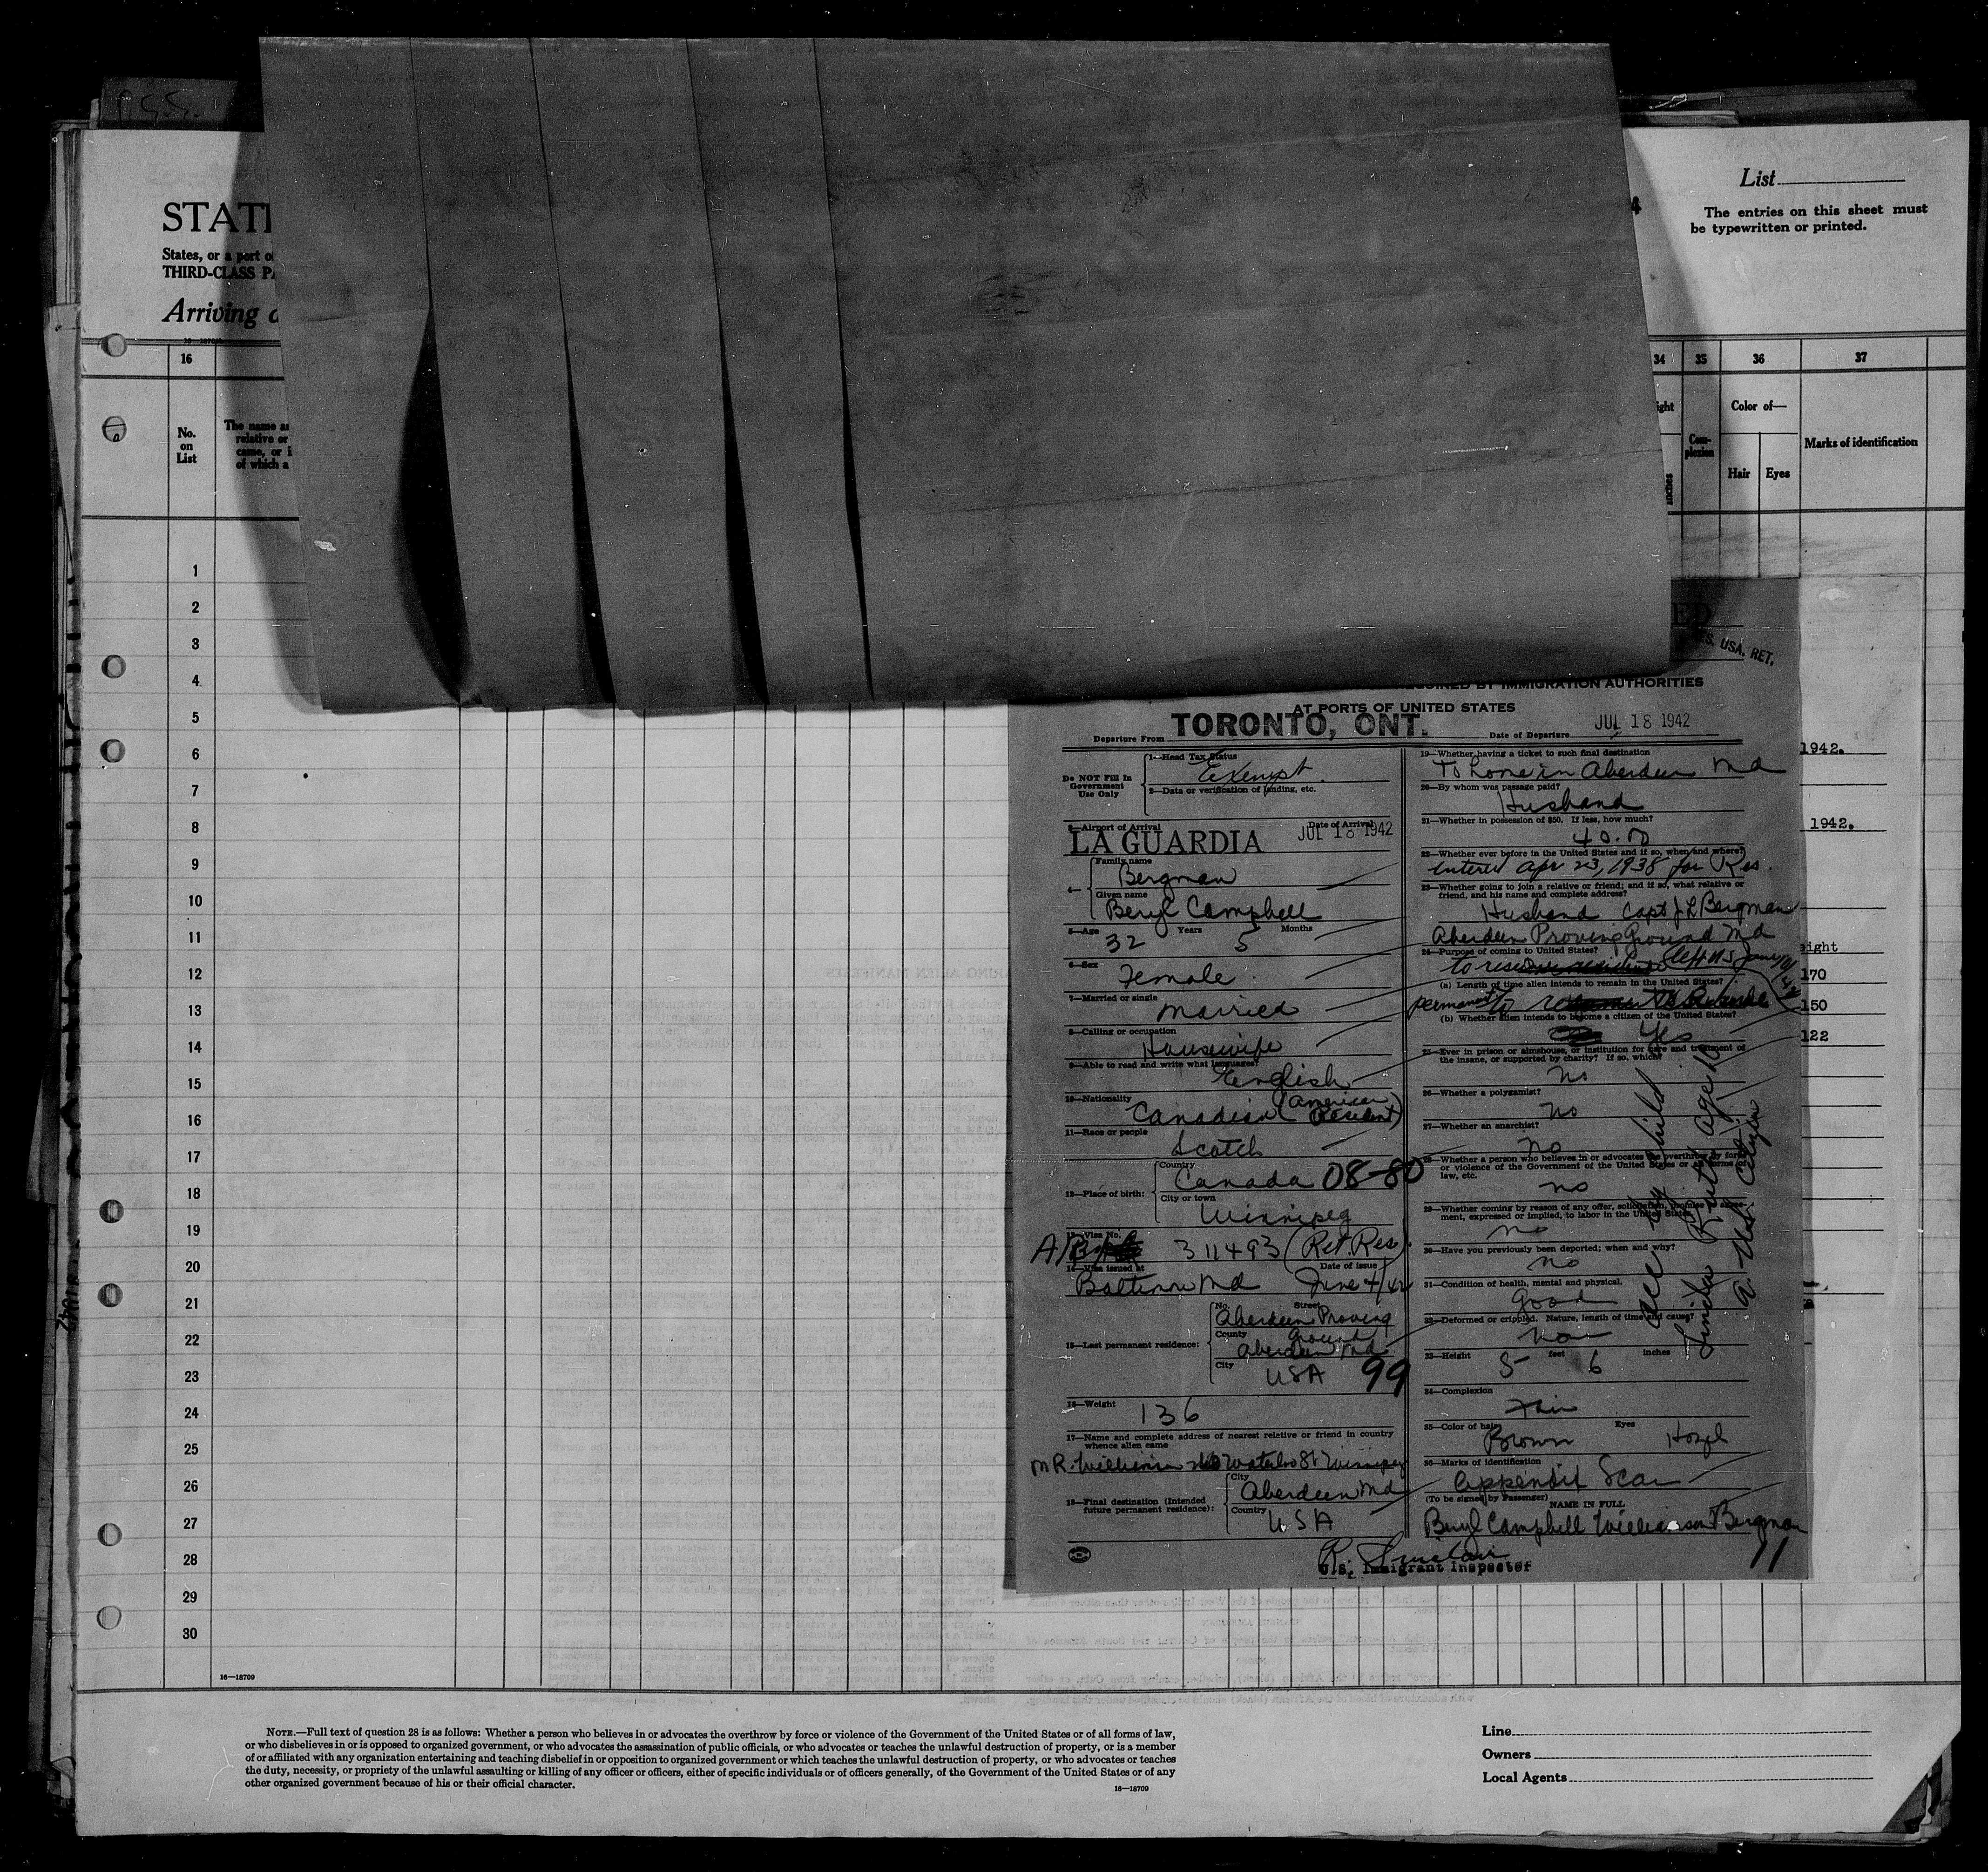 List
The entries on this sheet must
be typewritten or printed.
STAT
States, or a port o
THIRD-CLASS P
Arriving
16
34
35
36
37
No.
on
List
The name a
relative or
came, or i
of which a
ight
Com-
plexion
Color of—
Hair
Eyes
Marks of identification
inches
1
2
3
4
5
6
7
8
9
10
11
12
13
14
15
16
17
18
19
20
21
22
23
24
25
26
27
28
29
30
16—18709
ED
S. USA. RET.
REQUIRED BY IMMIGRATION AUTHORITIES
AT PORTS OF UNITED STATES
Departure From TORONTO, ONT.
Date of Departure JUL 18 1942
Do NOT Fill In
Government
Use Only
1—Head Tax Status
Exempt.
2—Data or verification of landing, etc.
3—Airport of Arrival
LA GUARDIA
Date of Arrival
JUL 18 1942
4—
Family name
Bergman
Given name
Beryl Campbell
5—Age 32 Years 5 Months
6—Sex
Female
7—Married or single
Married
8—Calling or occupation
Housewife
9—Able to read and write what languages?
English
10—Nationality
Canadian (American Resident)
11—Race or people
Scotch
12—Place of birth:
Country
Canada 08-80
City or town
Winnipeg
13—Visa No.
311493 (Ret. Res)
14—Visa issued at
Date of issue
Baltimore Md June 4/42
15—Last permanent residence:
No. Street
Aberdeen Proving
County
Ground
Aberdeen Md
City
USA 99
16—Weight
136
17—Name and complete address of nearest relative or friend in country
whence alien came
Waterloo St Winnipeg
18—Final destination (Intended
future permanent residence):
City
Aberdeen Md
Country
USA
19—Whether having a ticket to such final destination
To home in Aberdeen Md
20—By whom was passage paid?
Husband
21—Whether in possession of $50. If less, how much?
40.00
22—Whether ever before in the United States and if so, when and where?
Entered Apr 23, 1938 for Res.
23—Whether going to join a relative or friend; and if so, what relative or
friend, and his name and complete address?
Husband Capt J L Bergman
Aberdeen Proving Ground Md
24—Purpose of coming to United States?
Left US
(a) Length of time alien intends to remain in the United States?
permanent
(b) Whether alien intends to become a citizen of the United States?
Yes
25—Ever in prison or almshouse, or institution for care and treatment of
the insane, or supported by charity? If so, which?
No
26—Whether a polygamist?
No
27—Whether an anarchist?
No
28—Whether a person who believes in or advocates the overthrow by force
or violence of the Government of the United States or all forms of
law, etc.
No
29—Whether coming by reason of any offer, solicitation, promise or agree-
ment, expressed or implied, to labor in the United States?
No
30—Have you previously been deported; when and why?
No
31—Condition of health, mental and physical.
Good
32—Deformed or crippled. Nature, length of time and cause?
33—Height 5 feet 6 inches
34—Complexion
Fair
35—Color of hair Eyes
Brown Hazel
36—Marks of identification
Appendix Scar
(To be signed by Passenger)
NAME IN FULL
Beryl Campbell Williamson Bergman
11
R. Sinclair
U.S. Immigrant Inspector
acc by child
Linda Ruth age 10
a US citizen
1942.
1942.
eight
170
150
122
NOTE.—Full text of question 28 is as follows: Whether a person who believes in or advocates the overthrow by force or violence of the Government of the United States or of all forms of law,
or who disbelieves in or is opposed to organized government, or who advocates the assassination of public officials, or who advocates or teaches the unlawful destruction of property, or is a member
of or affiliated with any organization entertaining and teaching disbelief in or opposition to organized government or which teaches the unlawful destruction of property, or who advocates or teaches
the duty, necessity, or propriety of the unlawful assaulting or killing of any officer or officers, either of specific individuals or of officers generally, of the Government of the United States or of any
other organized government because of his or their official character.
16—18709
Line
Owners
Local Agents